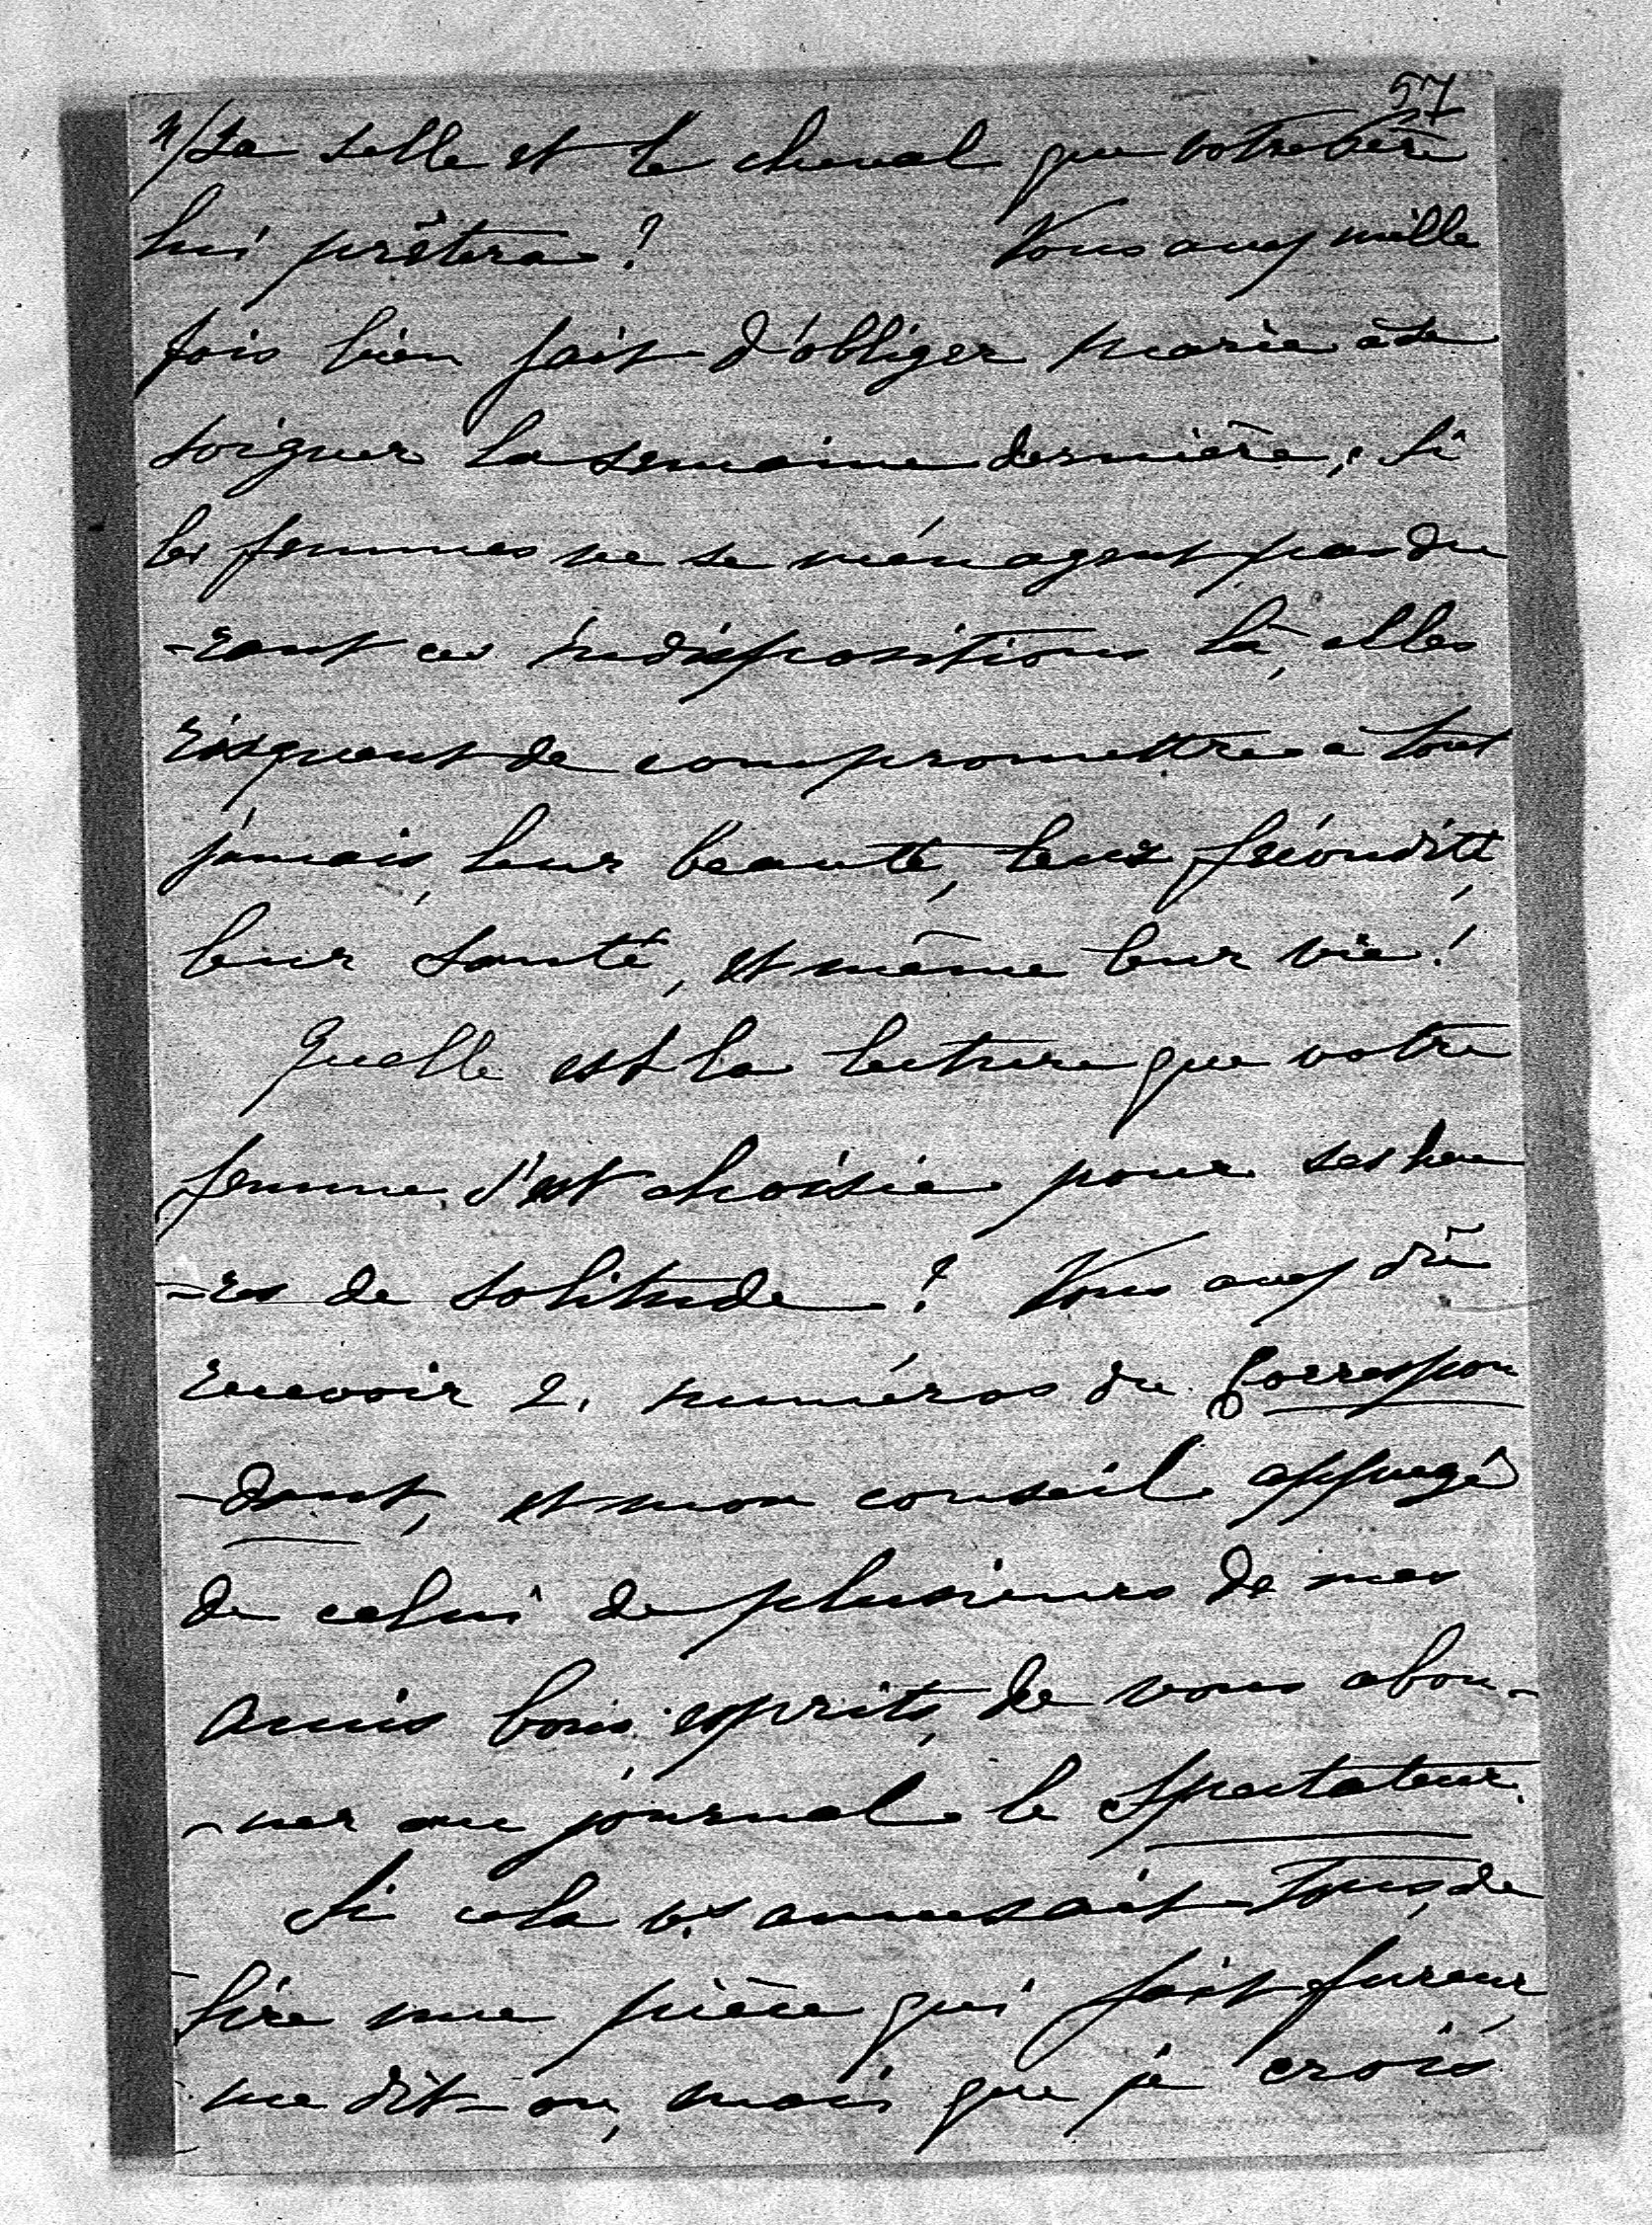 57
4/ La selle et le cheval que votre Père
lui prêtera ? Vous avez mille
fois bien fait d'obliger Marie à se
soigner la semaine dernière, si
les femmes ne se ménagent pas du
-rant ces indispositions là, elles
risquent de compromettre à tout
jamais, leur beauté, leur fécondité,
leur santé, et même leur vie !
Quelle est la lecture que votre
femme s'est choisie pour ses heu
-res de solitude ? Vous avez dû
recevoir 2. numéros du Correspon
-dant, et mon conseil appuyé
de celui de plusieurs de mes
amis bons esprits, de vous abon-
-ner au journal le Spectateur.
Si cela vs amusait Tous, de
lire une pièce qui fait fureur
me dit-on, mais que je crois